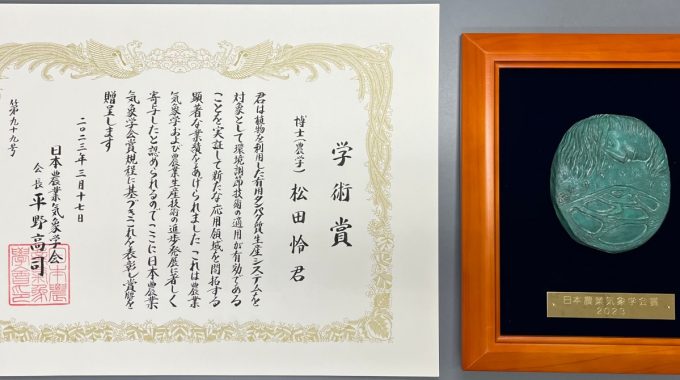 学術賞
博士(農学) 松田怜君
君は植物を利用した有用タンパク質生産システムを
対象として環境調節技術の適用が有効である
ことを実証して新たな応用領域を開拓する
顕著な業績をあげられました これは農業
気象学および農業生産技術の進歩発展に著しく
寄与したと認められるのでここに日本農業
気象学会賞規程に基づきこれを表彰し賞牌を
贈呈します
二〇二三年三月十七日
日本農業気象学会
会長 平野高司
第九十九号
日本農業気象学会賞
2023